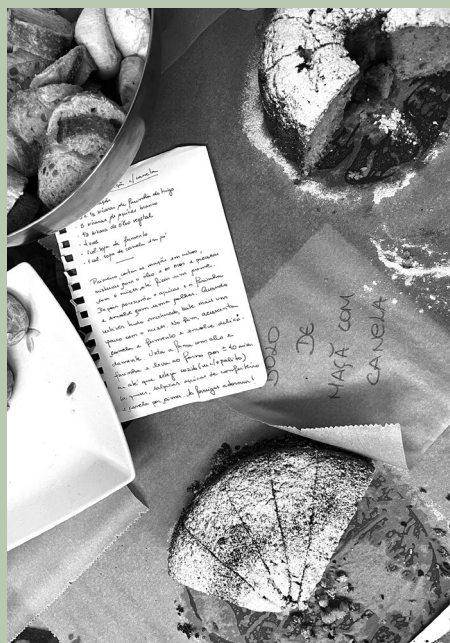 maçã c/ canela
xícaras de farinha de trigo
xícaras de açúcar branco
xícara de óleo vegetal
1 col. sopa de fermento
1 col. sopa de canela em pó
Primeiro, cortar as maçãs em cubos,
misturar com o óleo e os ovos e processar
com o mixer até ficar um creme.
Depois acrescentar o açúcar e a farinha
e envolver com uma colher. Quando
estiver tudo envolvido, bate mais um
pouco com o mixer. No fim acrescentar
canela e fermento e envolve delica-
damente. Unta a forma com óleo e
farinha e leva ao forno por ± 40 min
ou até que esteja cozido (ver c/ o palito)
Se quiser, salpicar açúcar de confeiteiro
e canela por cima. As formigas adoraram!
BOLO
DE
MAÇÃ COM
CANELA